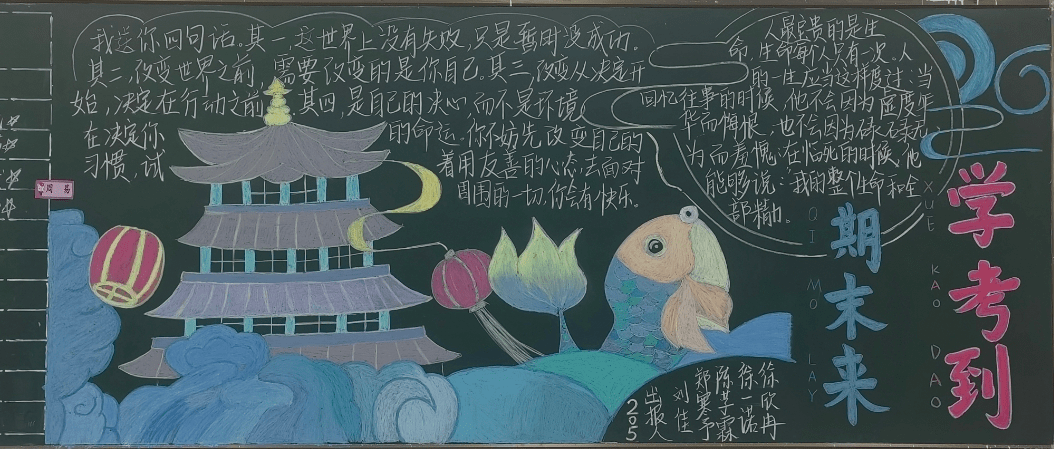 我送你四句话。其一,这世界上没有失败,只是暂时没成功。
其二,改变世界之前,需要改变的是你自己。其三,改变从决定开
始,决定在行动之前。其四,是自己的决心,而不是环境
在决定你的命运。你不妨先改变自己的
习惯,试着用友善的心态,去面对
周围的一切,你会有快乐。
人最宝贵的是生
命,生命每个人只有一次。人
的一生应当这样度过:当
回忆往事的时候,他不会因为虚度年
华而悔恨,也不会因为碌碌无
为而羞愧;在临死的时候,他
能够说:“我的整个生命和全
部精力。
学考到
XUE KAO DAO
期末来
QI MO LAY
徐欣冉
徐一诺
陈芋霖
郑寒予
刘佳
出报人
205
周易